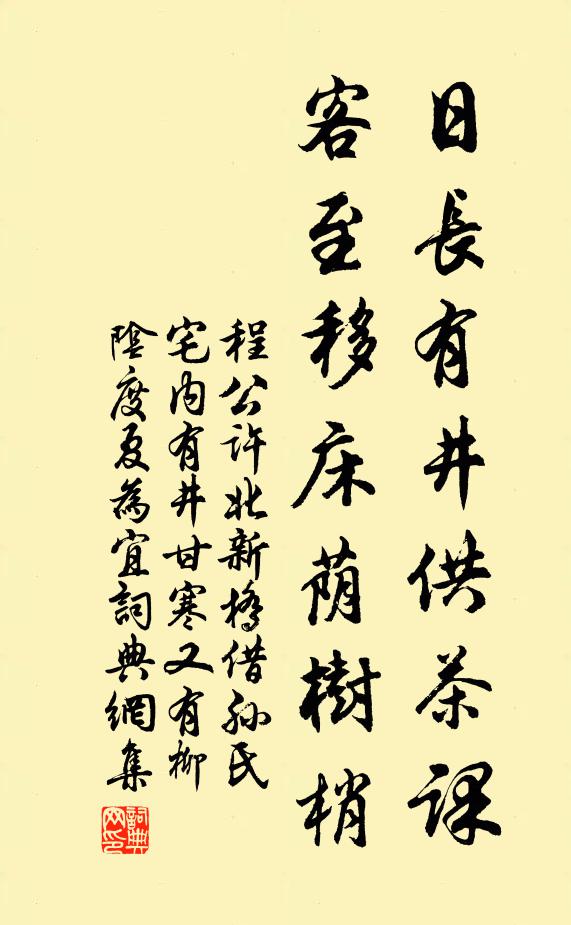 日長有井供茶課
客至移床荫樹梢
程公许北新橋借孙氏
宅内有井甘寒又有柳
陰度夏為宜詞典網集
詞典網印